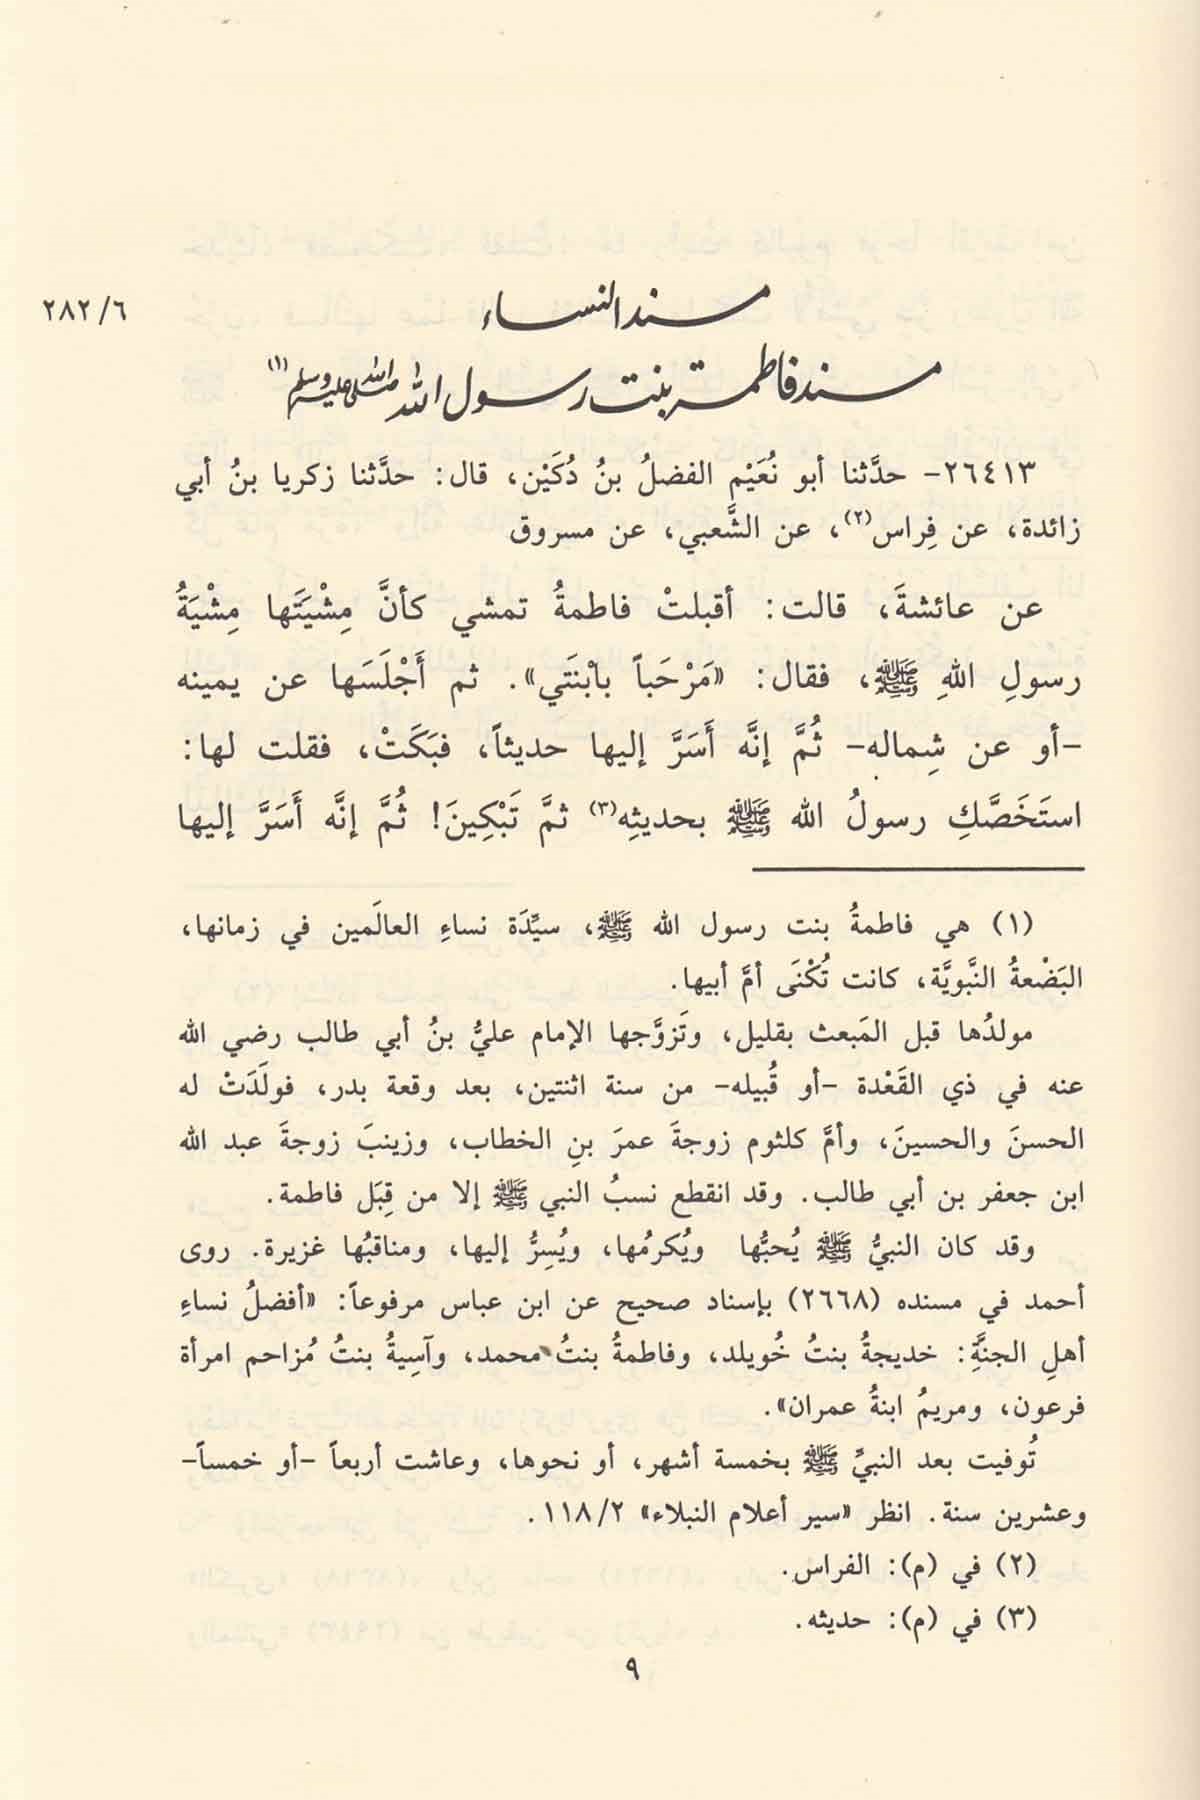 ٢٨٢/٦
مسند النساء
مسند فاطمة بنت رسول الله صلى الله عليه وسلم(١)
٢٦٤١٣- حدَّثنا أبو نُعَيْمٍ الفضلُ بنُ دُكَيْن، قال: حدَّثنا زكريا بنُ أبي
زائدة، عن فِراس(٢)، عن الشَّعبي، عن مسروق
عن عائشةَ، قالت: أقبلتْ فاطمةُ تمشي كأنَّ مِشْيَتَها مِشْيَةُ
رسولِ اللهِ ﷺ، فقال: «مَرْحَباً بابْنَتي». ثم أَجْلَسَها عن يمينه
-أو عن شِماله- ثُمَّ إنَّه أَسَرَّ إليها حديثاً، فبَكَتْ، فقلت لها:
استَخَصَّكِ رسولُ الله ﷺ بحديثِه(٣) ثمَّ تَبْكِينَ! ثُمَّ إنَّه أَسَرَّ إليها
(١) هي فاطمةُ بنت رسول الله ﷺ، سيِّدَة نساءِ العالَمين في زمانها،
البَضْعةُ النَّبويَّة، كانت تُكْنَى أمَّ أبيها.
مولدُها قبل المَبعث بقليل، وتَزوَّجها الإمام عليُّ بنُ أبي طالب رضي الله
عنه في ذي القَعْدة -أو قُبيله- من سنة اثنتين، بعد وقعة بدر، فولَدَتْ له
الحسنَ والحسينَ، وأمَّ كلثوم زوجةَ عمرَ بنِ الخطاب، وزينبَ زوجةَ عبد الله
ابن جعفر بن أبي طالب. وقد انقطع نسبُ النبي ﷺ إلا من قِبَل فاطمة.
وقد كان النبيُّ ﷺ يُحبُّها ويُكرمُها، ويُسِرُّ إليها، ومناقبُها غزيرة. روى
أحمد في مسنده (٢٦٦٨) بإسناد صحيح عن ابن عباس مرفوعاً: «أفضلُ نساءِ
أهلِ الجنَّةِ: خديجةُ بنتُ خُويلد، وفاطمةُ بنتُ محمد، وآسِيةُ بنتُ مُزاحم امرأة
فرعون، ومريمُ ابنةُ عمران».
تُوفيت بعد النبيِّ ﷺ بخمسة أشهر، أو نحوها، وعاشت أربعاً -أو خمساً-
وعشرين سنة. انظر «سير أعلام النبلاء» ١١٨/٢.
(٢) في (م): الفراس.
(٣) في (م): حديثه.
٩